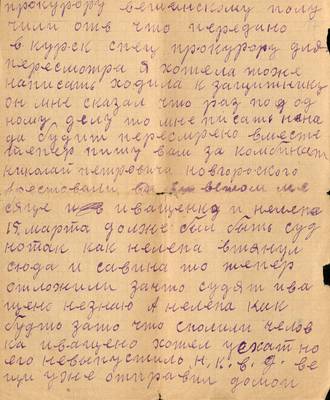 прокурору вешенскому полу
чили отв что передано
в курск спец прокурору для
пересмотра Я хотела тоже
написать ходила к защитнику
он мне сказал что раз по од
ному делу то мне писать нена
да будит пересмрено вместе
тепер пишу вам за
николай петровича новгороского
Арестовали в ме
сяце и иващенко и нелепа
15 марта долже был быть суд
но так как нелепа втянул
сюда и савина то тепер
отложили за что судят ива
щенко незнаю А нелепа как
будто зато что спомили челов
ка иващено хотел уехат но
его невыпустило Н.К.В.Д. ве
щи уже отправил домой